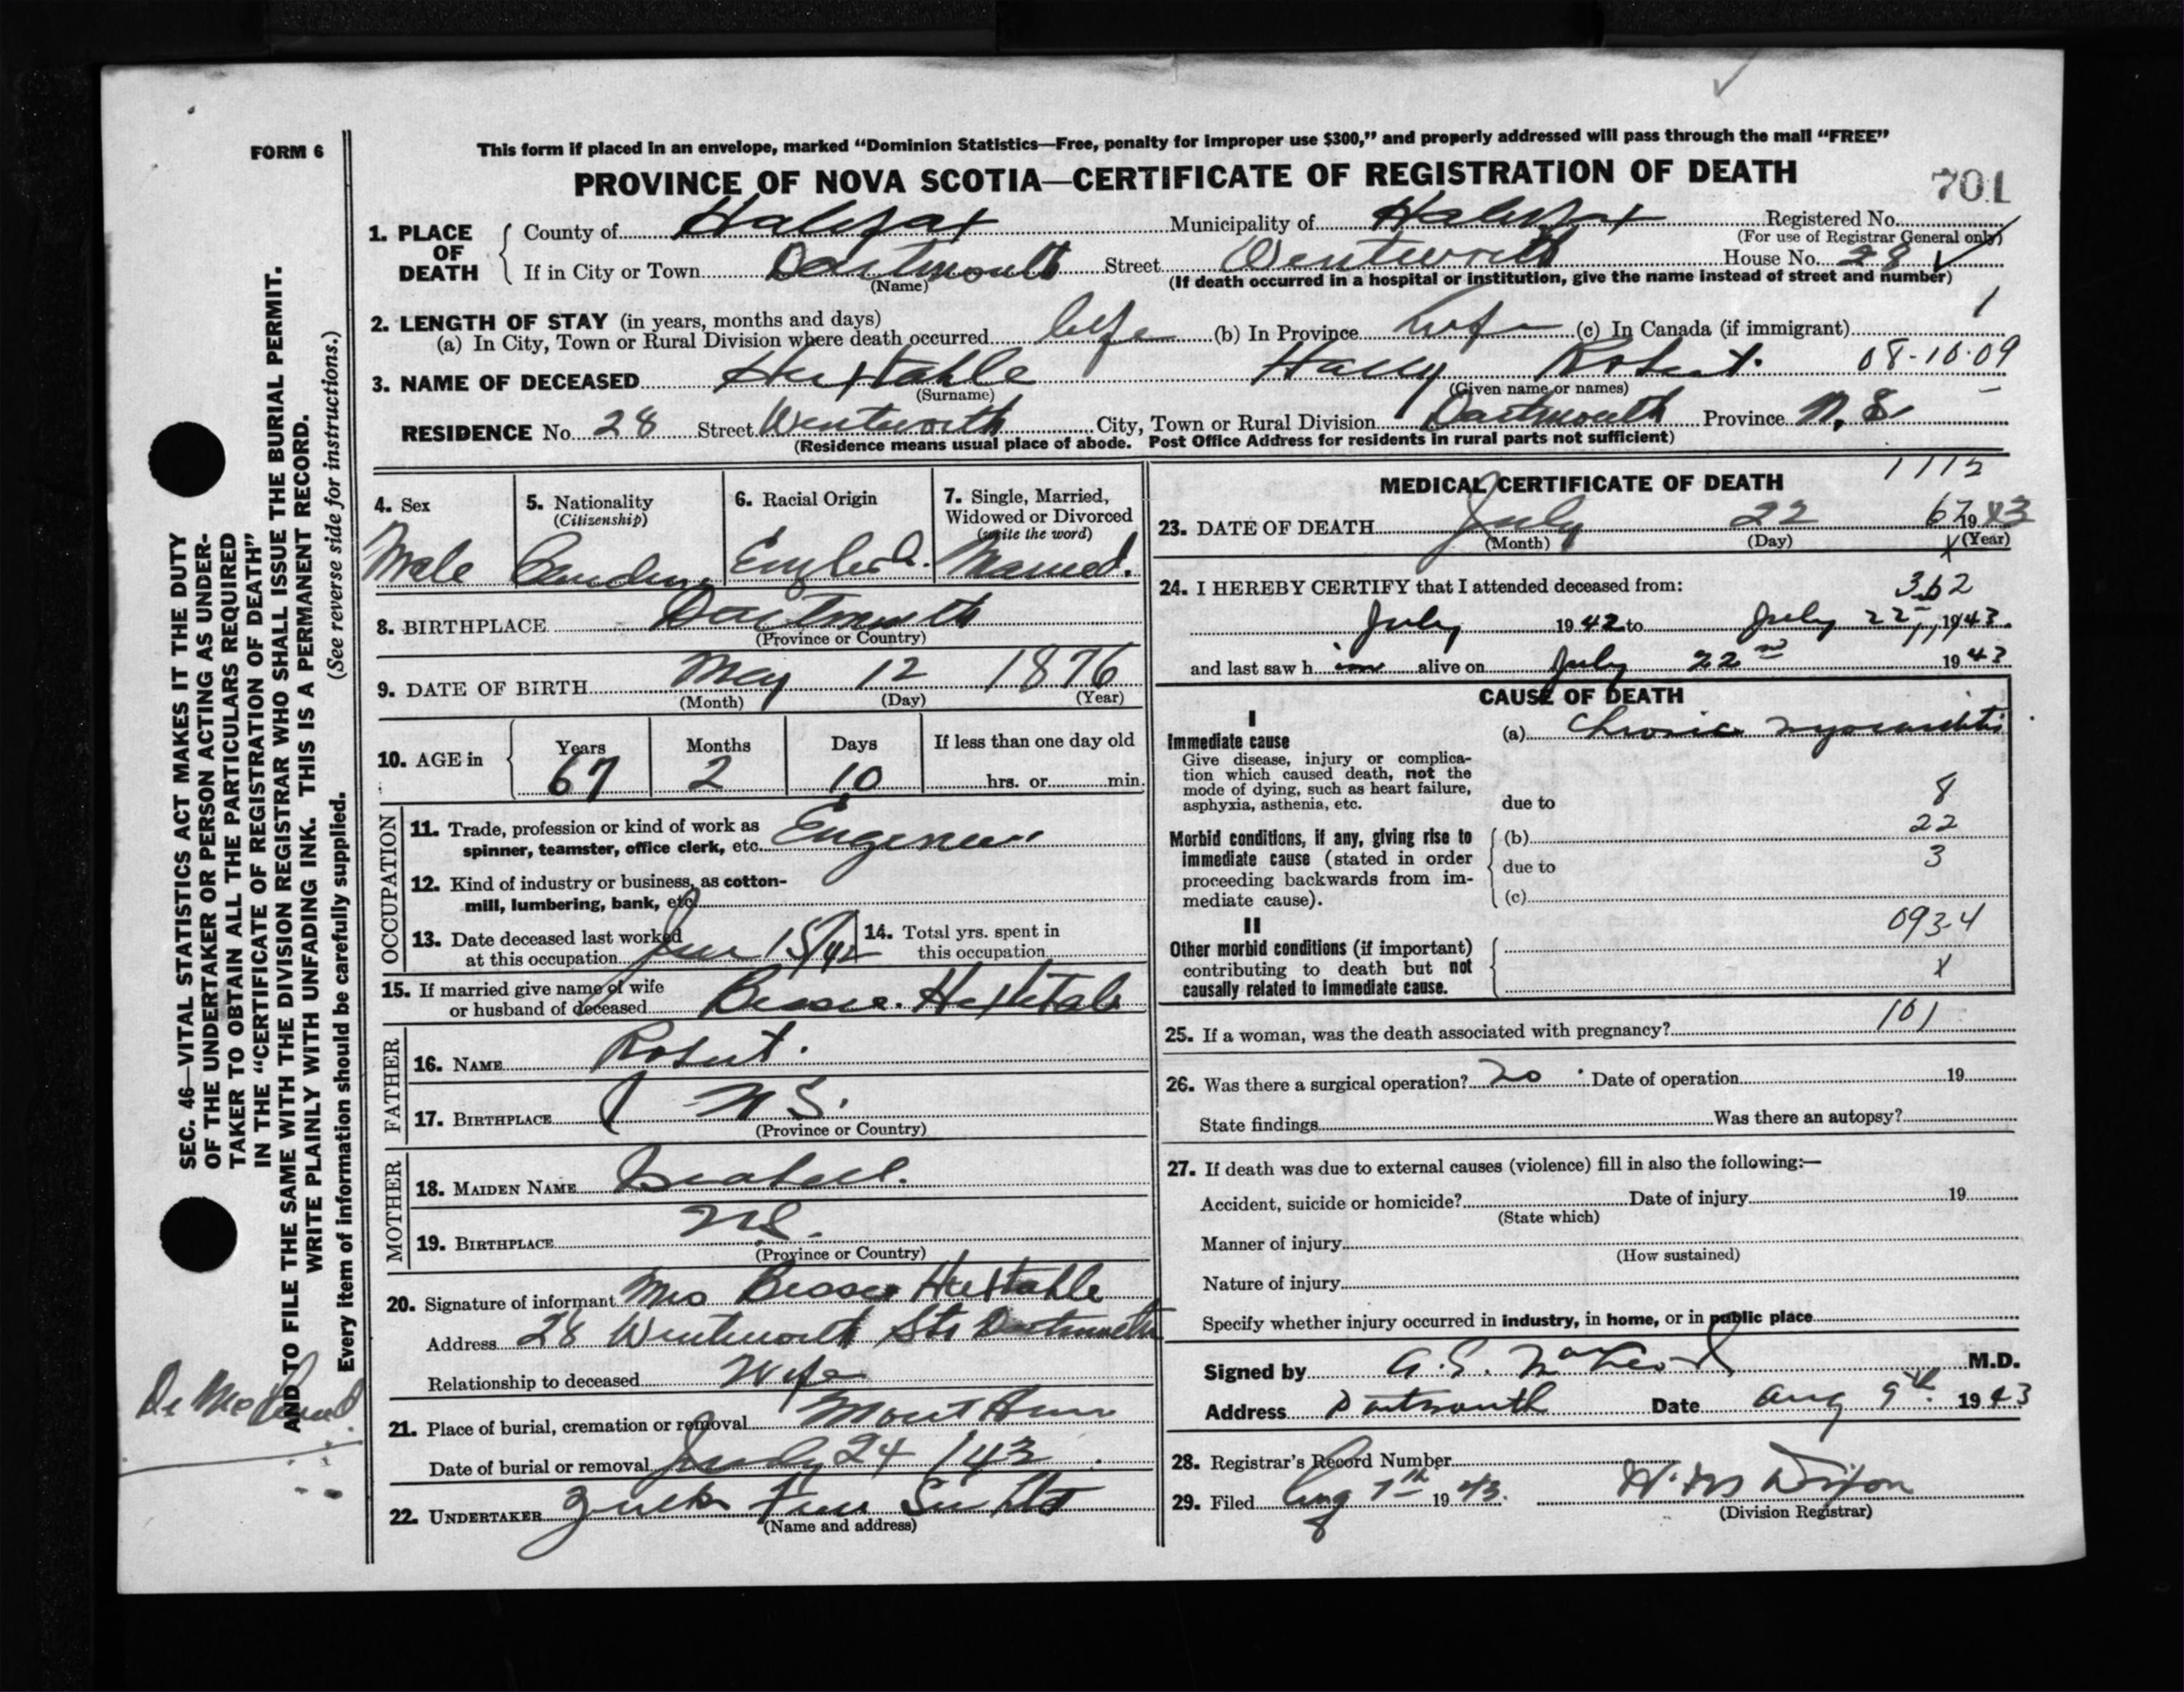 FORM 6
This form if placed in an envelope, marked “Dominion Statistics—Free, penalty for improper use $300,” and properly addressed will pass through the mail “FREE”
PROVINCE OF NOVA SCOTIA—CERTIFICATE OF REGISTRATION OF DEATH
701
1. PLACE OF DEATH
County of Halifax Municipality of Halifax Registered No.
(For use of Registrar General only)
If in City or Town Dartmouth Street Wentworth House No. 28
(Name) (If death occurred in a hospital or institution, give the name instead of street and number)
2. LENGTH OF STAY (in years, months and days)
1
(a) In City, Town or Rural Division where death occurred life (b) In Province life (c) In Canada (if immigrant)
3. NAME OF DECEASED Huxtable Harry Robert. 08-10-09
(Surname) (Given name or names)
RESIDENCE No. 28 Street Wentworth City, Town or Rural Division Dartmouth Province N.S.
(Residence means usual place of abode. Post Office Address for residents in rural parts not sufficient)
4. Sex
Male
5. Nationality
(Citizenship)
6. Racial Origin
English.
7. Single, Married, Widowed or Divorced
(write the word)
Married.
8. BIRTHPLACE Dartmouth
(Province or Country)
9. DATE OF BIRTH May 12 1876
(Month) (Day) (Year)
10. AGE in
Years Months Days If less than one day old
67 2 10 hrs. or min.
OCCUPATION
11. Trade, profession or kind of work as
spinner, teamster, office clerk, etc. Engineer
12. Kind of industry or business, as cotton-
mill, lumbering, bank, etc.
13. Date deceased last worked
at this occupation 15/42
14. Total yrs. spent in
this occupation
15. If married give name of wife
or husband of deceased Bessie Huxtable
FATHER
16. NAME Robert.
17. BIRTHPLACE N S.
(Province or Country)
MOTHER
18. MAIDEN NAME Isabell.
19. BIRTHPLACE N.S.
(Province or Country)
20. Signature of informant Mrs Bessie Huxtable
Address 28 Wentworth St. Dartmouth
Relationship to deceased Wife
21. Place of burial, cremation or removal Mount Herm
Date of burial or removal July 24 / 43
22. UNDERTAKER
(Name and address)
1112
MEDICAL CERTIFICATE OF DEATH
23. DATE OF DEATH July 22 67 1943
(Month) (Day) (Year)
X
24. I HEREBY CERTIFY that I attended deceased from:
362
July 1942 to July 22 1943.
and last saw him alive on July 22nd 1943
CAUSE OF DEATH
I
Immediate cause
Give disease, injury or complica-
tion which caused death, not the
mode of dying, such as heart failure,
asphyxia, asthenia, etc.
(a) Chronic myocarditis
due to 8
Morbid conditions, if any, giving rise to
immediate cause (stated in order
proceeding backwards from im-
mediate cause).
(b) 22
due to 3
(c)
II
Other morbid conditions (if important)
contributing to death but not
causally related to immediate cause.
093-4
X
101
25. If a woman, was the death associated with pregnancy?
26. Was there a surgical operation? no Date of operation 19
State findings Was there an autopsy?
27. If death was due to external causes (violence) fill in also the following:—
Accident, suicide or homicide? Date of injury 19
(State which)
Manner of injury
(How sustained)
Nature of injury
Specify whether injury occurred in industry, in home, or in public place
Signed by M.D.
Address Dartmouth Date Aug 9th 1943
28. Registrar's Record Number
29. Filed Aug 7th 1943.
8
(Division Registrar)
SEC. 46—VITAL STATISTICS ACT MAKES IT THE DUTY
OF THE UNDERTAKER OR PERSON ACTING AS UNDER-
TAKER TO OBTAIN ALL THE PARTICULARS REQUIRED
IN THE “CERTIFICATE OF REGISTRATION OF DEATH”
AND TO FILE THE SAME WITH THE DIVISION REGISTRAR WHO SHALL ISSUE THE BURIAL PERMIT.
WRITE PLAINLY WITH UNFADING INK. THIS IS A PERMANENT RECORD.
(See reverse side for instructions.)
Every item of information should be carefully supplied.